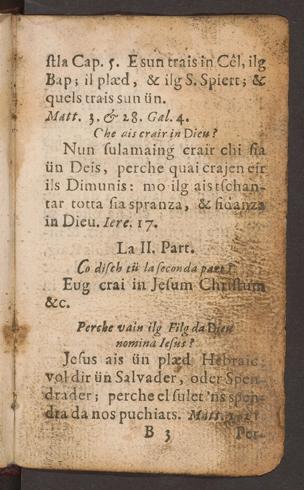 ſtla Cap. 5. E sun trais in Cêl, ilg
Bap; il plæd, & ilg S. Spiert; &
quels trais sun ün.
Matt. 3. & 28. Gal. 4.
Che ais crair in Dieu?
Nun ſulamaing crair chi ſia
ün Deis, perche quai crajen eir
ils Dimunis: mo ilg ais tſchan-
tar totta ſia spranza, & fidanza
in Dieu. Iere. 17.
La II. Part.
Co diſch tü la ſeconda part?
Eug crai in Jeſum Chriſtum
&c.
Perche vain ilg Filg da Dieu
nomina Ieſus?
Jeſus ais ün plæd Hebraic:
vol dir ün Salvader, oder Spen-
drader; perche el ſulet 'ns spen-
dra da nos puchiats. Matt.
B 3
Per-